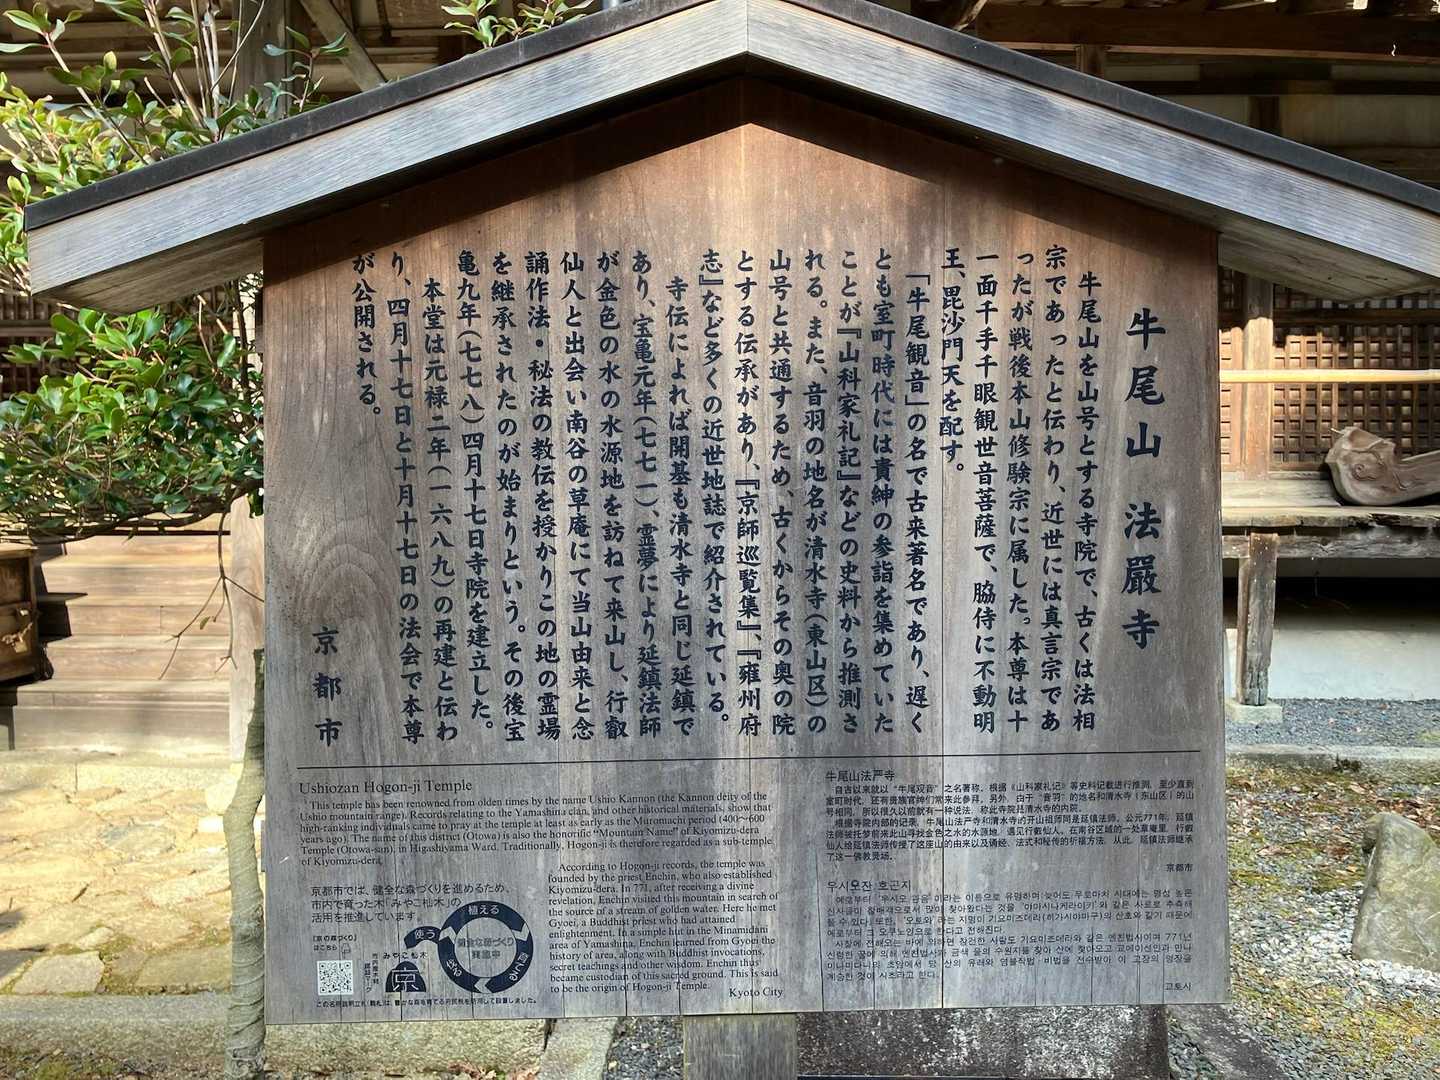 牛尾山 法嚴寺
牛尾山を山号とする寺院で、古くは法相
宗であったと伝わり、近世には真言宗であ
ったが戦後本山修験宗に属した。本尊は十
一面千手千眼観世音菩薩で、脇侍に不動明
王、毘沙門天を配す。
「牛尾観音」の名で古来著名であり、遅く
とも室町時代には貴紳の参詣を集めていた
ことが『山科家礼記』などの史料から推測さ
れる。また、音羽の地名が清水寺(東山区)の
山号と共通するため、古くからその奥の院
とする伝承があり、『京師巡覧集』、『雍州府
志』など多くの近世地誌で紹介されている。
寺伝によれば開基も清水寺と同じ延鎮で
あり、宝亀元年(七七一)、霊夢により延鎮法師
が金色の水の水源地を訪ねて来山し、行叡
仙人と出会い南谷の草庵にて当山由来と念
誦作法・秘法の教伝を授かりこの地の霊場
を継承されたのが始まりという。その後宝
亀九年(七七八)四月十七日寺院を建立した。
本堂は元禄二年(一六八九)の再建と伝わ
り、四月十七日と十月十七日の法会で本尊
が公開される。
京都市
Ushiozan Hogon-ji Temple
This temple has been renowned from olden times by the name Ushio Kannon (the Kannon deity of the
Ushio mountain range). Records relating to the Yamashina clan, and other historical materials, show that
high-ranking individuals came to pray at the temple at least as early as the Muromachi period (400~600
years ago). The name of this district (Otowa) is also the honorific "Mountain Name" of Kiyomizu-dera
Temple (Otowa-san), in Higashiyama Ward. Traditionally, Hogon-ji is therefore regarded as a sub-temple
of Kiyomizu-dera.
According to Hogon-ji records, the temple was
founded by the priest Enchin, who also established
Kiyomizu-dera. In 771, after receiving a divine
revelation, Enchin visited this mountain in search of
the source of a stream of golden water. Here he met
Gyoei, a Buddhist priest who had attained
enlightenment. In a simple hut in the Minamidani
area of Yamashina, Enchin learned from Gyoei the
history of area, along with Buddhist invocations,
secret teachings and other wisdom. Enchin thus
became custodian of this sacred ground. This is said
to be the origin of Hogon-ji Temple.
Kyoto City
京都市では、健全な森づくりを進めるため、
市内で育った木「みやこ杣木」の
活用を推進しています。
「京の森づくり」
はこちら
市内産木材
認証マーク
みやこ杣木
京
植える
育てる
使う
健全な森づくり
実施中
牛尾山法严寺
自古以来就以“牛尾观音”之名著称。根据《山科家礼记》等史料记载进行推测，至少直到
室町时代，还有贵族官绅们常来此参拜。另外，由于“音羽”的地名和清水寺（东山区）的山
号相同，所以很久以前就有一种说法，称此寺院是清水寺的内院。
根据寺院内部的记录，牛尾山法严寺和清水寺的开山祖师同是延镇法师。公元771年，延镇
法师被托梦前来此山寻找金色之水的水源地，遇见行叡仙人，在南谷区域的一处草庵里，行叡
仙人给延镇法师传授了这座山的由来以及诵经、法式和秘传的祈福方法，从此，延镇法师继承
了这一佛教灵场。
京都市
우시오잔 호곤지
교토시